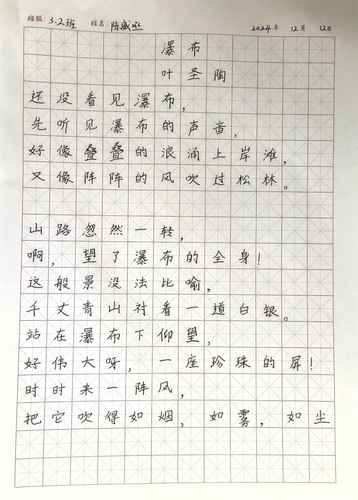 班级：3.2班 姓名：陈威丞 2024年 12月 12日
瀑布
叶圣陶
还没看见瀑布，
先听见瀑布的声音，
好像叠叠的浪涌上岸滩，
又像阵阵的风吹过松林。
山路忽然一转，
啊，望了瀑布的全身！
这般景没法比喻，
千丈青山衬着一道白银。
站在瀑布下仰望，
好伟大呀，一座珍珠的屏！
时时来一阵风，
把它吹得如烟，如雾，如尘